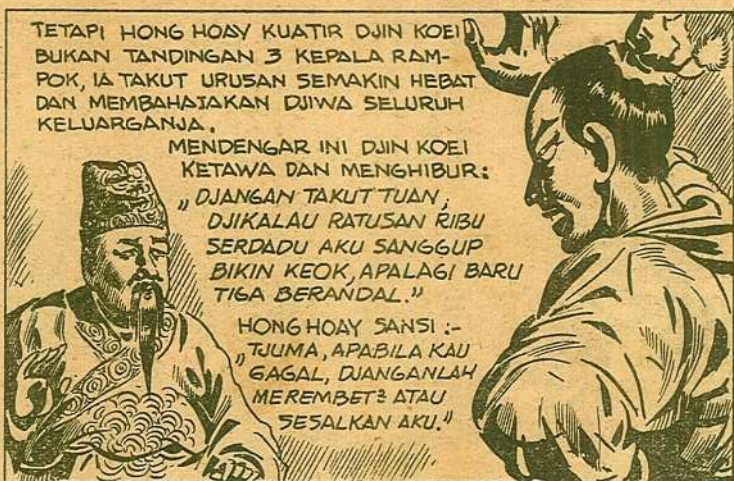 TETAPI HONG HOAY KUATIR DJIN KOEI
BUKAN TANDINGAN 3 KEPALA RAM-
POK, IA TAKUT URUSAN SEMAKIN HEBAT
DAN MEMBAHAJAKAN DJIWA SELURUH
KELUARGANJA.
MENDENGAR INI DJIN KOEI
KETAWA DAN MENGHIBUR:
„DJANGAN TAKUT TUAN,
DJIKALAU RATUSAN RIBU
SERDADU AKU SANGGUP
BIKIN KEOK, APALAGI BARU
TIGA BERANDAL."
HONG HOAY SANSI :-
„TJUMA, APABILA KAU
GAGAL, DJANGANLAH
MEREMBET² ATAU
SESALKAN AKU."